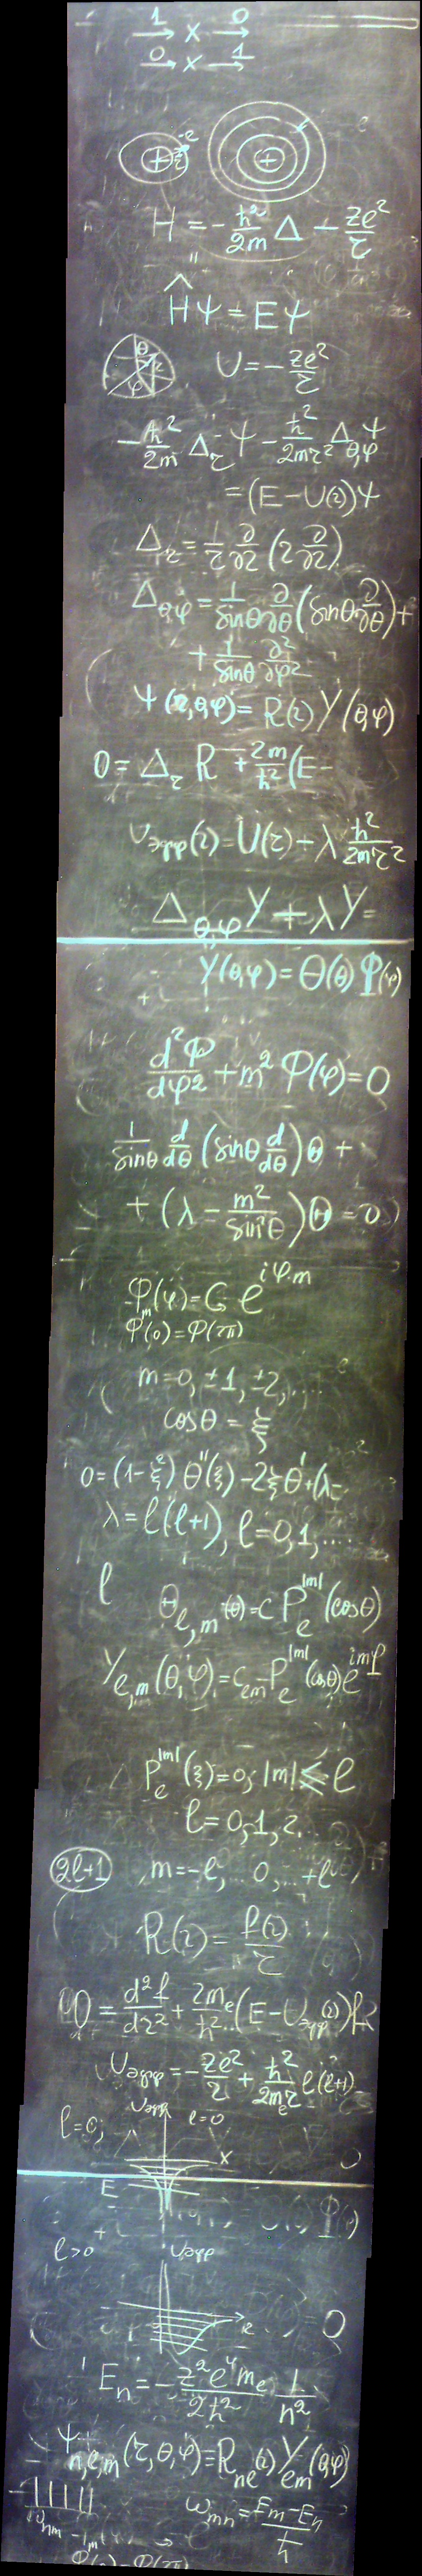 1 → × 0 →
0 → × 1 →
+ -e +
H = -ħ²/2m Δ - ze²/r
Ĥψ = Eψ
θ r φ U = -ze²/r
-ħ²/2m Δ_r ψ - ħ²/2mr² Δ_θ,φ ψ
= (E-U(r))ψ
Δ_r = 1/r ∂/∂r (r ∂/∂r)
Δ_θ,φ = 1/sinθ ∂/∂θ (sinθ ∂/∂θ) +
+ 1/sinθ ∂²/∂φ²
ψ(r,θ,φ) = R(r) Y(θ,φ)
0 = Δ_r R + 2m/ħ² (E-
U_эфф(r) = U(r) + λ ħ²/2mr²
Δ_θ,φ Y + λY =
Y(θ,φ) = Θ(θ) Φ(φ)
d²Φ/dφ² + m² Φ(φ) = 0
1/sinθ d/dθ (sinθ d/dθ) Θ +
+ (λ - m²/sin²θ) Θ = 0
Φ_m(φ) = C e^{iφ·m}
Φ(0) = Φ(2π)
m = 0, ±1, ±2, ....
cosθ = ξ
0 = (1-ξ²) Θ''(ξ) - 2ξΘ' + (λ-
λ = ℓ(ℓ+1), ℓ = 0,1,....
ℓ Θ_ℓ,m(θ) = C P_ℓ^|m| (cosθ)
Y_ℓ,m(θ,φ) = C_ℓm P_ℓ^|m| (cosθ) e^{imφ}
P_ℓ^|m| (ξ) = 0; |m| ≤ ℓ
ℓ = 0,1,2...
2ℓ+1 m = -ℓ, ... 0, ... +ℓ
R(r) = f(r)/r
0 = d²f/dr² + 2m_e/ħ² (E - U_эфф(r)) f
U_эфф = -ze²/r + ħ²/2m_e r ℓ(ℓ+1)
ℓ=0; U_эфф ℓ=0
x
E
ℓ>0 U_эфф
r
E_n = - z²e⁴m_e/2ħ² 1/n²
ψ_n,ℓ,m (r,θ,φ) = R_nℓ(r) Y_ℓm(θ,φ)
ω_nm ω_mn = (E_m - E_n)/ħ